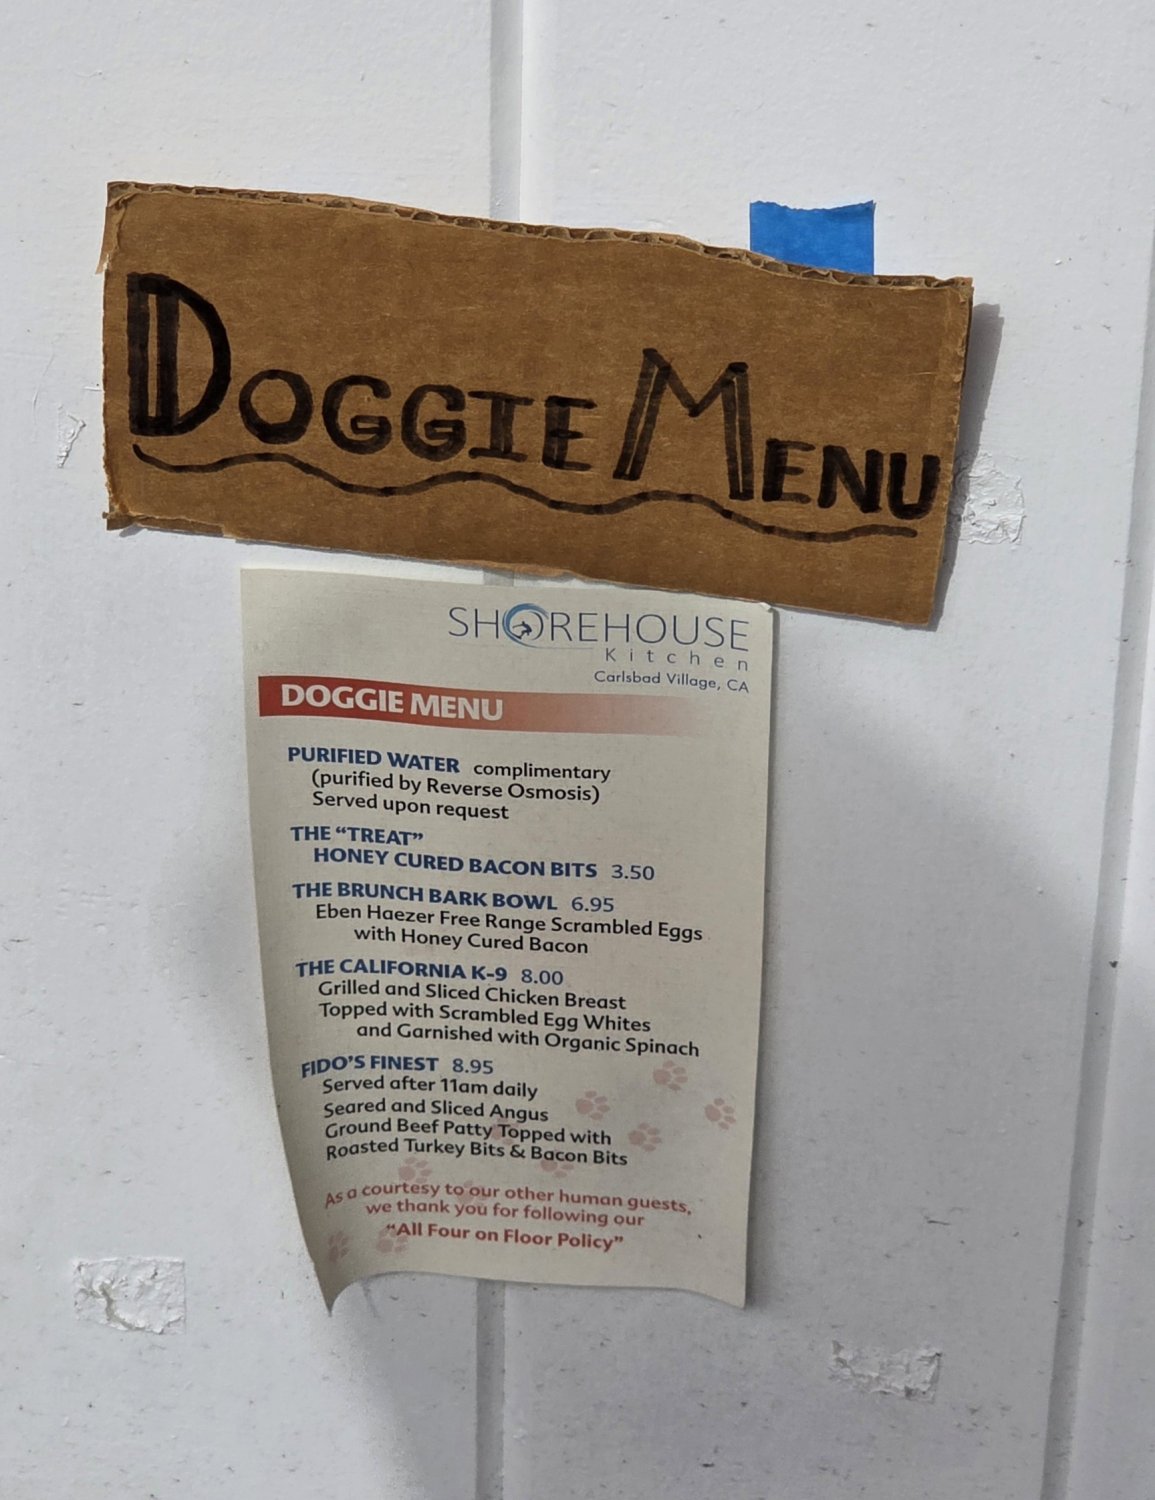 DOGGIE MENU
SHOREHOUSE
Kitchen
Carlsbad Village, CA
DOGGIE MENU
PURIFIED WATER complimentary
(purified by Reverse Osmosis)
Served upon request
THE “TREAT”
HONEY CURED BACON BITS 3.50
THE BRUNCH BARK BOWL 6.95
Eben Haezer Free Range Scrambled Eggs
with Honey Cured Bacon
THE CALIFORNIA K-9 8.00
Grilled and Sliced Chicken Breast
Topped with Scrambled Egg Whites
and Garnished with Organic Spinach
FIDO’S FINEST 8.95
Served after 11am daily
Seared and Sliced Angus
Ground Beef Patty Topped with
Roasted Turkey Bits & Bacon Bits
As a courtesy to our other human guests,
we thank you for following our
“All Four on Floor Policy”